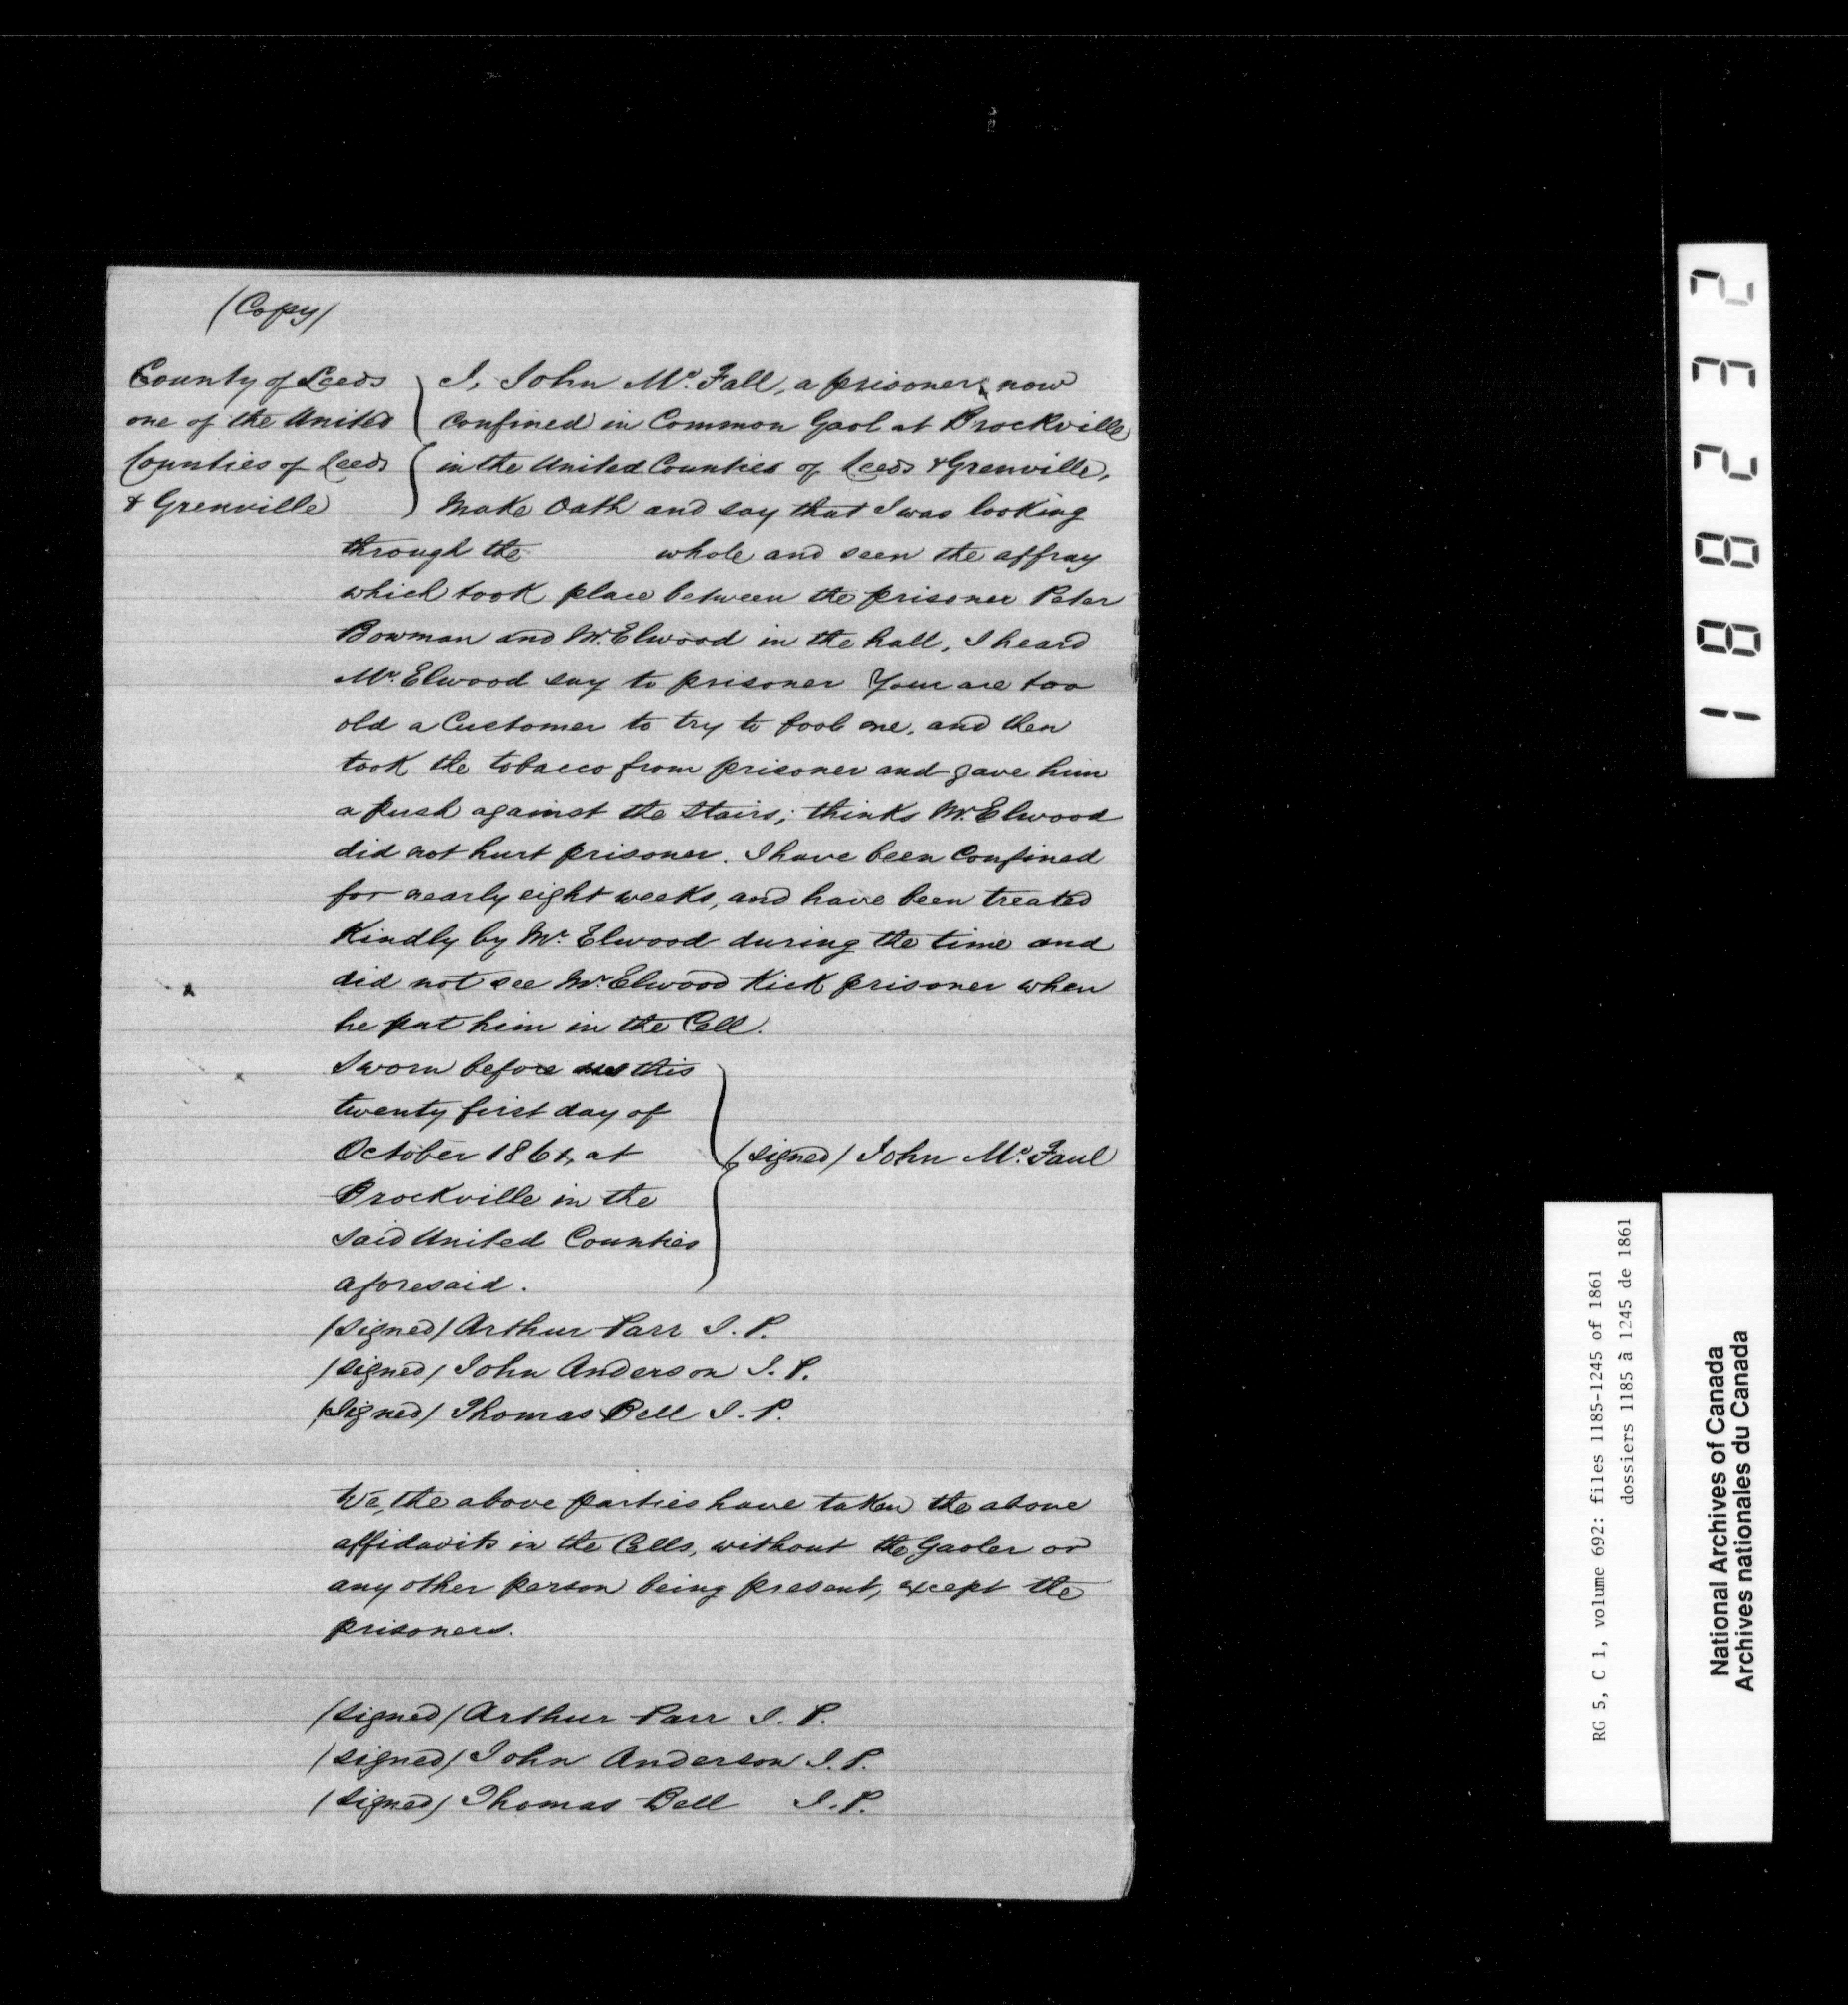 (Copy)
County of Leeds
one of the United
Counties of Leeds
& Grenville
I, John Mc. Fall, a prisoner, now
confined in Common Gaol at Brockville
in the United Counties of Leeds & Grenville,
Make Oath and say that I was looking
through the whole and seen the affray
which took place between the prisoner Peter
Bowman and Mr. Elwood in the hall, I heard
Mr. Elwood say to prisoner Your are too
old a Customer to try to fool me, and then
took the tobacco from prisoner and gave him
a push against the Stairs; thinks Mr. Elwood
did not hurt prisoner. I have been Confined
for nearly eight weeks, and have been treated
Kindly by Mr. Elwood during the time and
did not see Mr. Elwood Kick prisoner when
he put him in the Cell.
Sworn before us this
twenty first day of
October 1861, at
Brockville in the
said United Counties
aforesaid.
(signed) John Mc. Faul
(signed) Arthur Parr J. P.
(signed) John Anderson J. P.
(Signed) Thomas Bell J. P.
We, the above parties have taken the above
affidavits in the Cells, without the Gaoler or
any other person being present, except the
prisoners.
(signed) Arthur Parr J. P.
(signed) John Anderson J. P.
(signed) Thomas Bell J. P.
188232
RG 5, C 1, volume 692: files 1185-1245 of 1861
dossiers 1185 à 1245 de 1861
National Archives of Canada
Archives nationales du Canada